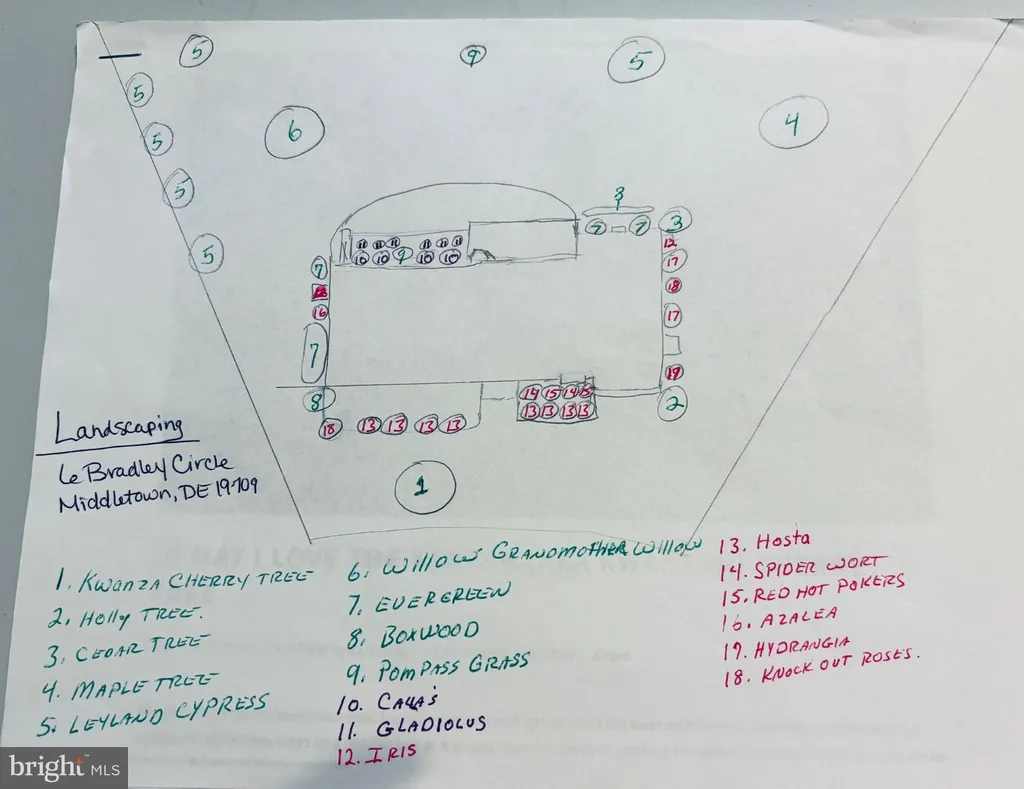 5
9
5
5
6
4
5
5
8
3
5
7
12
11 11 11 11 11 11
10 10 9 10 10
7
17
18
16
17
7
19
14 15 14 15
8
13 13 13 13
2
18
13 13 13 13
Landscaping
6 Bradley Circle
Middletown, DE 19709
1
1. KWANZA CHERRY TREE
2. Holly TREE.
3. CEDAR TREE
4. MAPLE TREE
5. LEYLAND CYPRESS
6. WILLOW GRANDMOTHER WILLOW
7. EVERGREEN
8. BOXWOOD
9. POMPASS GRASS
10. CALLA'S
11. GLADIOLUS
12. IRIS
13. Hosta
14. SPIDER WORT
15. RED HOT POKERS
16. AZALEA
17. HYDRANGIA
18. KNOCK OUT ROSES.
bright MLS